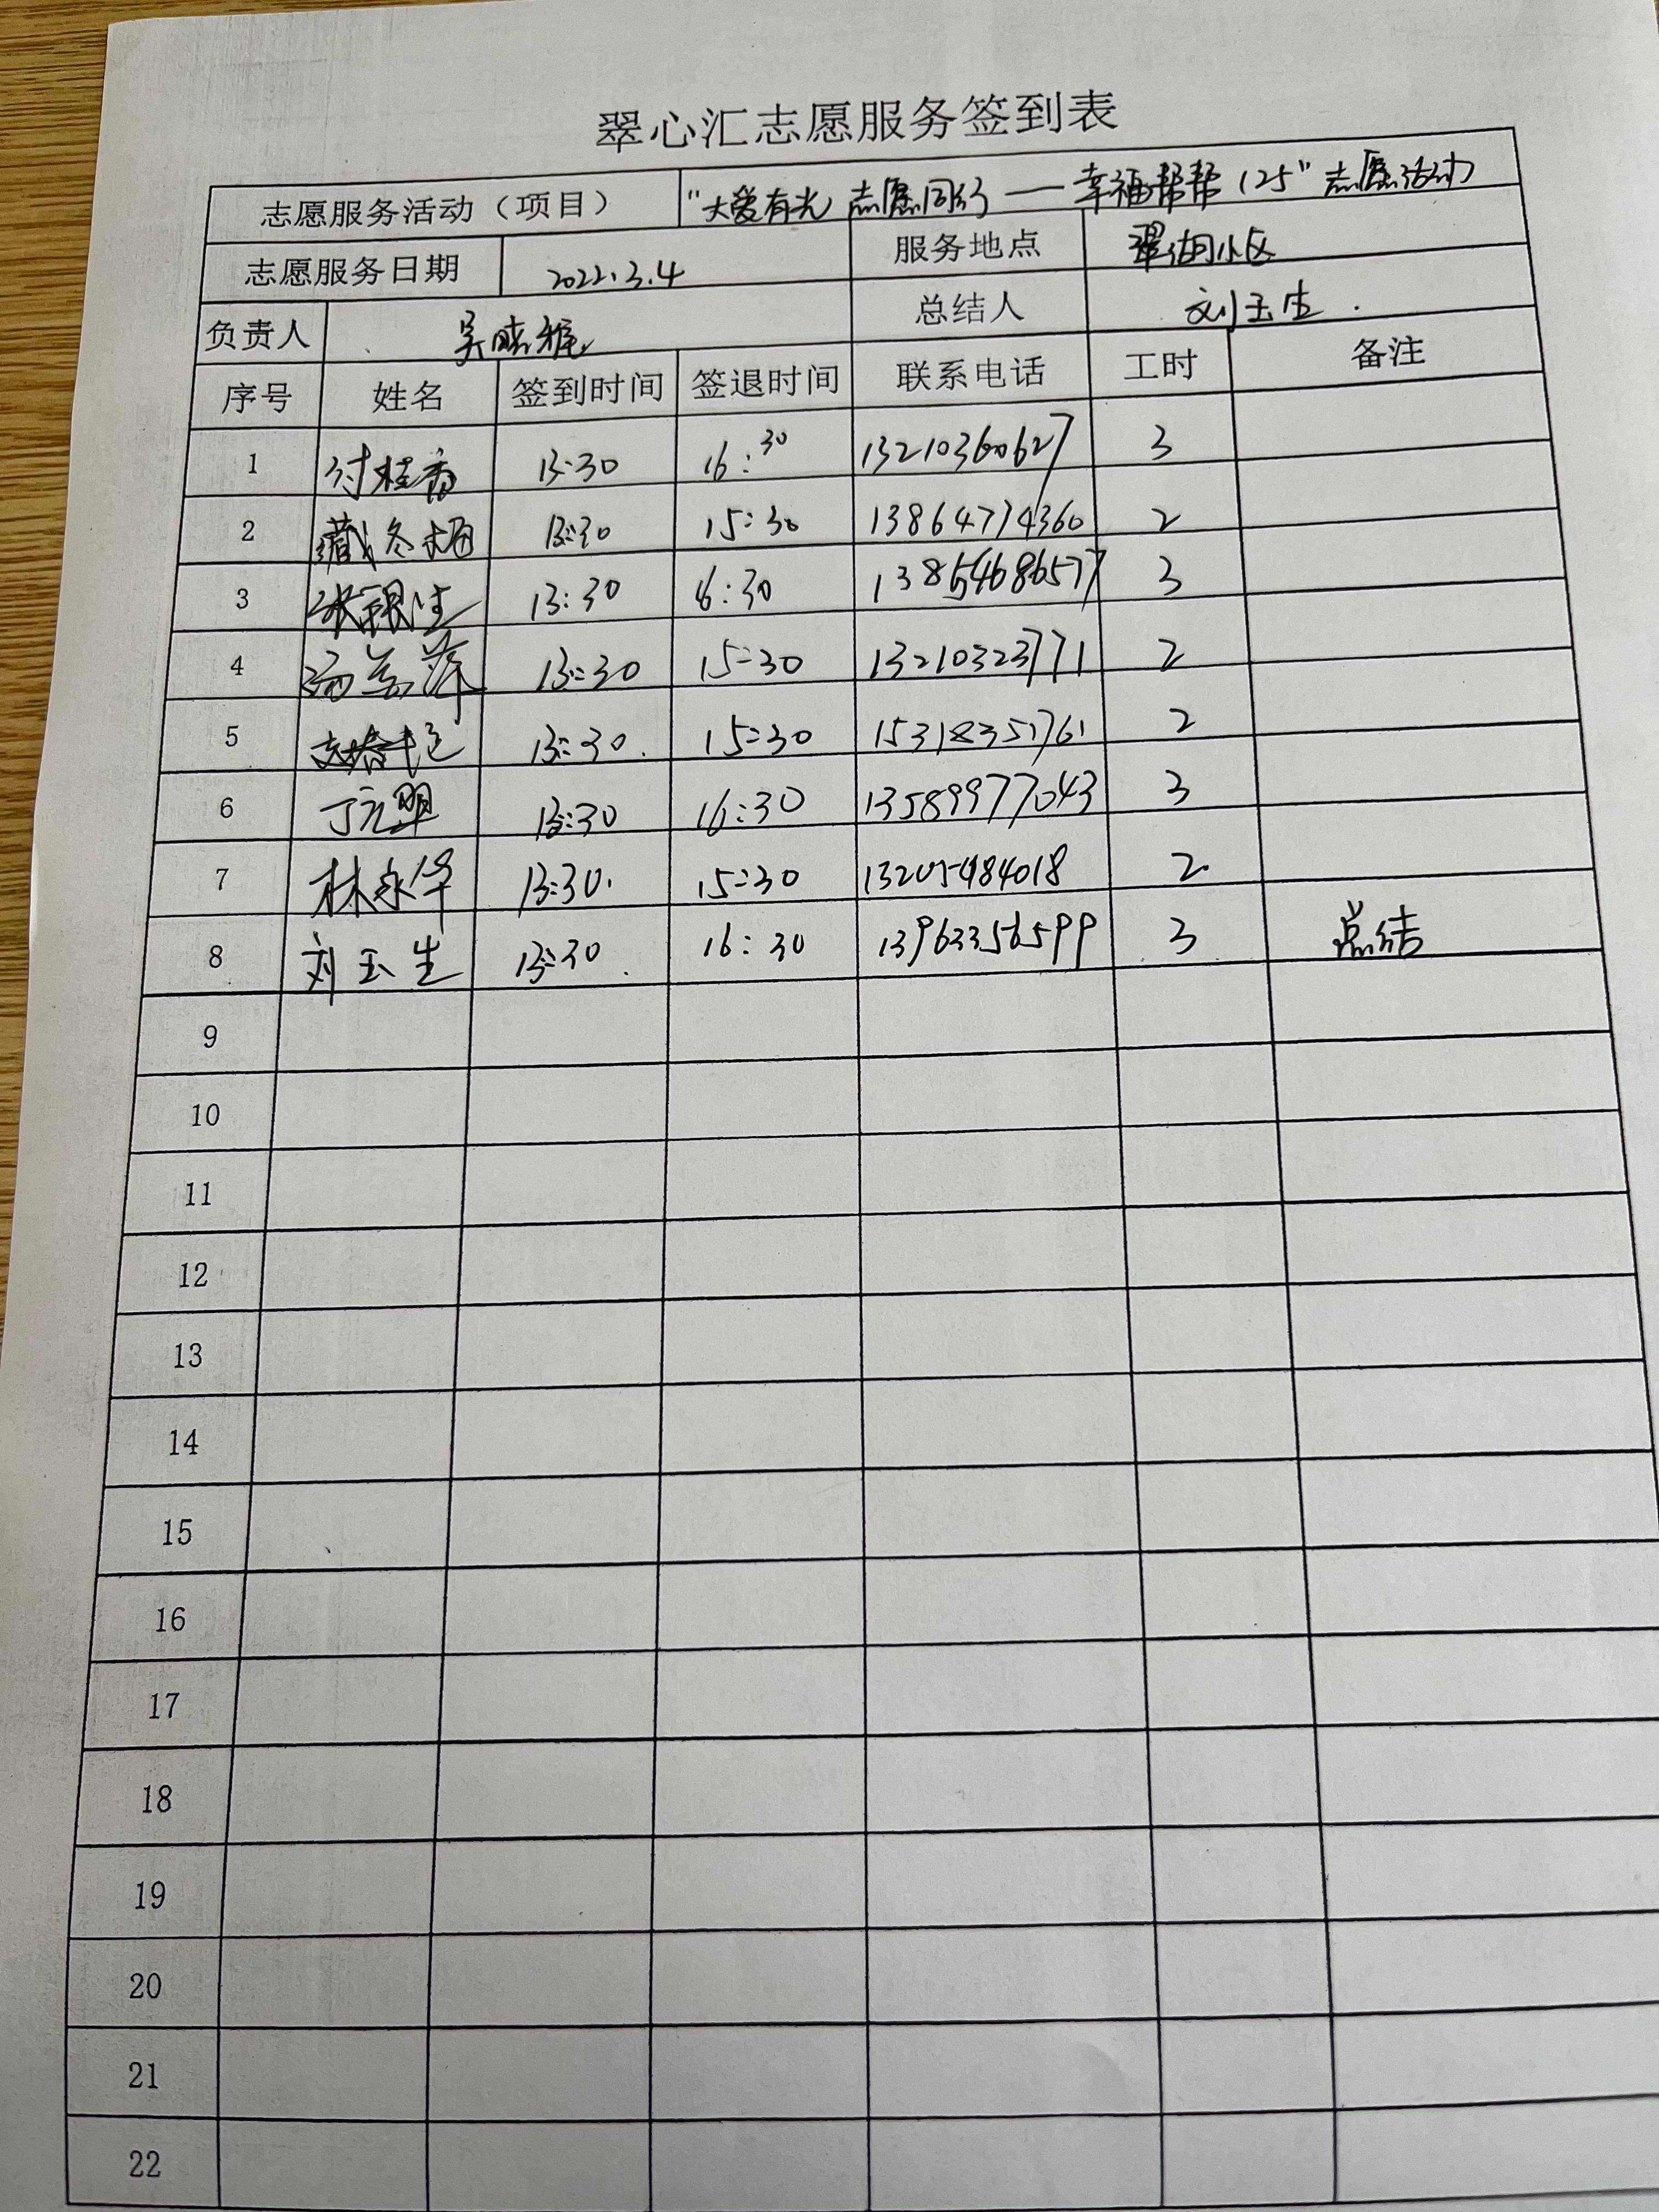 翠心汇志愿服务签到表
志愿服务活动（项目） "大爱有光 志愿同行 —— 幸福帮帮125"志愿活动
志愿服务日期 2022.3.4 服务地点 翠湖小区
负责人 吴晓雅 总结人 刘玉生
序号 姓名 签到时间 签退时间 联系电话 工时 备注
1 付桂香 13:30 16:30 13210360627 3
2 藏冬梅 13:30 15:30 13864774360 2
3 张银生 13:30 16:30 13854686577 3
4 13:30 15:30 13210323771 2
5 13:30 15:30 15318351761 2
6 丁元翠 13:30 16:30 13589977043 3
7 林永华 13:30 15:30 13205484018 2
8 刘玉生 13:30 16:30 13963356599 3 总结
9
10
11
12
13
14
15
16
17
18
19
20
21
22